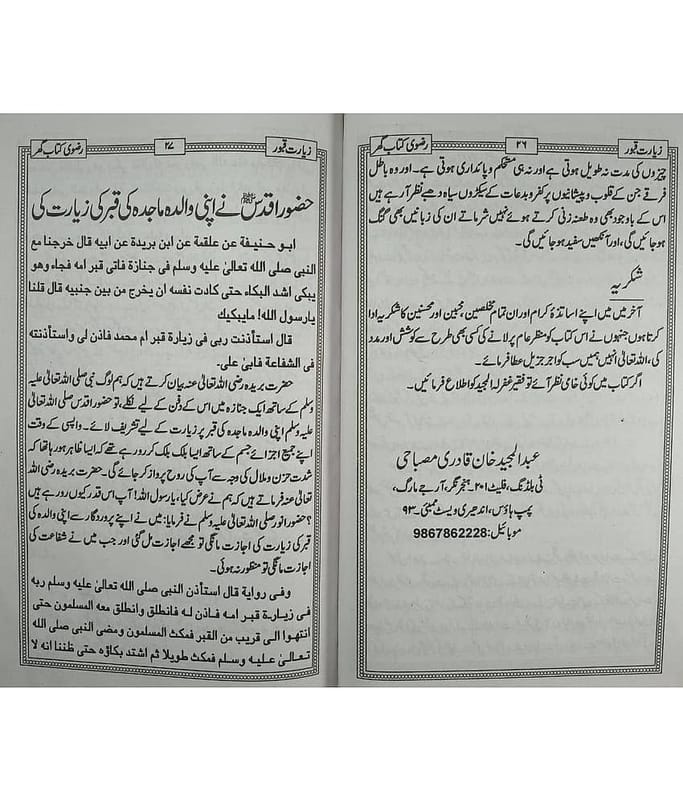 زیارت قبور
۲۶
رضوی کتاب گھر
چیزوں کی مدت نہ طویل ہوتی ہے اور نہ ہی مستحکم و پائداری ہوتی ہے۔ اور وہ باطل
فرقے جن کے قلوب و پیشانیوں پر کفر و بدعات کے سیکڑوں سیاہ دھبے نظر آرہے ہیں
اس کے باوجود بھی وہ طعنہ زنی کرتے ہوئے نہیں شرماتے ان کی زبانیں بھی گنگ
ہو جائیں گی، اور آنکھیں سفید ہو جائیں گی۔
شکریہ
آخر میں میں اپنے اساتذۂ کرام اور ان تمام مخلصین، محبین اور محسنین کا شکریہ ادا
کرتا ہوں جنہوں نے اس کتاب کو منظر عام پر لانے کی کسی بھی طرح سے کوشش اور مدد
کی، اللہ تعالیٰ انہیں ہمیں سب کو اجر جزیل عطا فرمائے۔
اگر کتاب میں کوئی خامی نظر آئے تو فقیر غفرلہ المجید کو اطلاع فرمائیں۔
عبدالمجید خان قادری مصباحی
ٹی بلڈنگ، فلیٹ ۲۰۱۔ نگر، آر جے مارگ،
پمپ ہاؤس، اندھیری ویسٹ ممبئی۔ ۹۳
موبائیل: 9867862228
زیارت قبور
۲۷
رضوی کتاب گھر
حضور اقدس ﷺ نے اپنی والدہ ماجدہ کی قبر کی زیارت کی
ابو حنیفة عن علقمة عن ابن بریدة عن ابیه قال خرجنا مع
النبی صلی الله تعالیٰ علیه وسلم فی جنازة فاتی قبر امه فجاء وهو
یبکی اشد البکاء حتی کادت نفسه ان یخرج من بین جنبیه قال قلنا
یارسول الله! مایبکیک
قال استأذنت ربی فی زیارة قبر ام محمد فاذن لی واستاذنته
فی الشفاعة فابیٰ علی۔
حضرت بریدہ رضی اللہ تعالیٰ عنہ بیان کرتے ہیں کہ ہم لوگ نبی صلی اللہ تعالیٰ علیہ
وسلم کے ساتھ ایک جنازہ میں اس کے دفن کے لیے نکلے، تو حضور اقدس صلی اللہ تعالیٰ
علیہ وسلم اپنی والدہ ماجدہ کی قبر پر زیارت کے لیے تشریف لائے۔ واپسی کے وقت
اپنے جمیع اجزائے جسم کے ساتھ ایسا بلک بلک کر رو رہے تھے کہ ایسا ظاہر ہو رہا تھا کہ
شدت حزن و ملال کی وجہ سے آپ کی روح پرواز کر جائے گی۔ حضرت بریدہ رضی اللہ
تعالیٰ عنہ فرماتے ہیں کہ ہم نے عرض کیا، یارسول اللہ! آپ اس قدر کیوں رو رہے ہیں
؟ حضور انور صلی اللہ تعالیٰ علیہ وسلم نے فرمایا: میں نے اپنے پروردگار سے اپنی والدہ کی
قبر کی زیارت کی اجازت مانگی تو مجھے اجازت مل گئی اور جب میں نے شفاعت کی
اجازت مانگی تو منظور نہ ہوئی۔
وفی روایة قال استأذن النبی صلی الله تعالیٰ علیه وسلم ربه
فی زیارة قبر امه فاذن له فانطلق وانطلق معه المسلمون حتی
انتهوا الی قریب من القبر فمکث المسلمون ومضی النبی صلی الله
تعالیٰ علیه وسلم فمکث طویلا ثم اشتد بکاؤه حتی ظننا انه لا